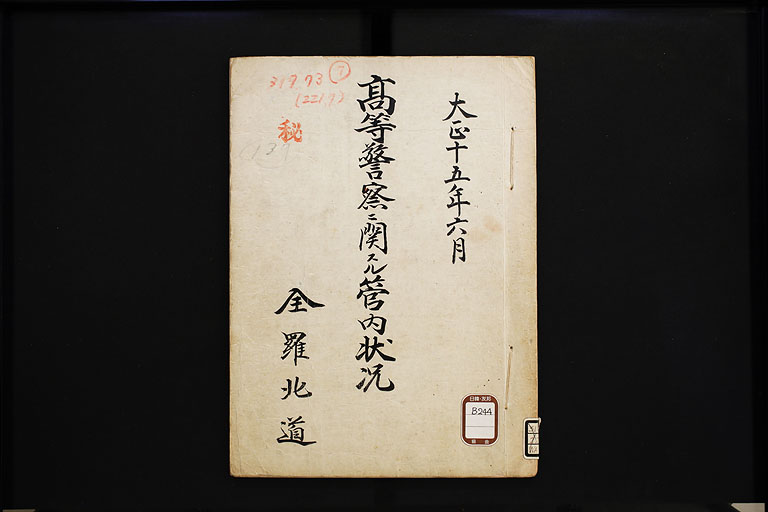 大正十五年六月
高等警察ニ関スル管内状況
全羅北道
317.73
7
(221.7)
秘
137
日韓・友邦
B244